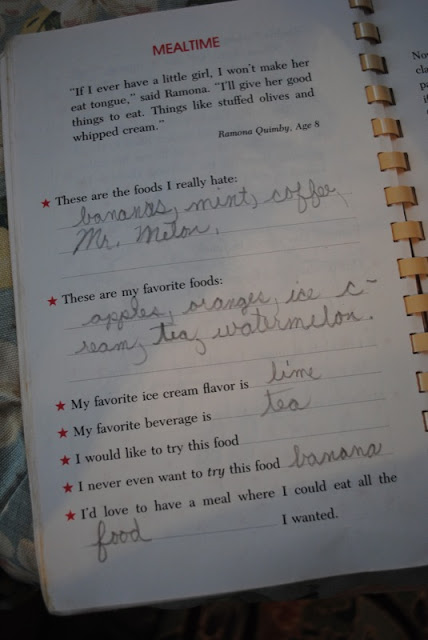 MEALTIME
"If I ever have a little girl, I won't make her
eat tongue," said Ramona. "I'll give her good
things to eat. Things like stuffed olives and
whipped cream."
Ramona Quimby, Age 8
★ These are the foods I really hate:
bananas, mint, coffee,
Mr. Melon.
★ These are my favorite foods:
apples, oranges, ice c-
ream, tea, watermelon.
★ My favorite ice cream flavor is lime
★ My favorite beverage is tea
★ I would like to try this food
★ I never even want to try this food banana
★ I'd love to have a meal where I could eat all the
food I wanted.
No